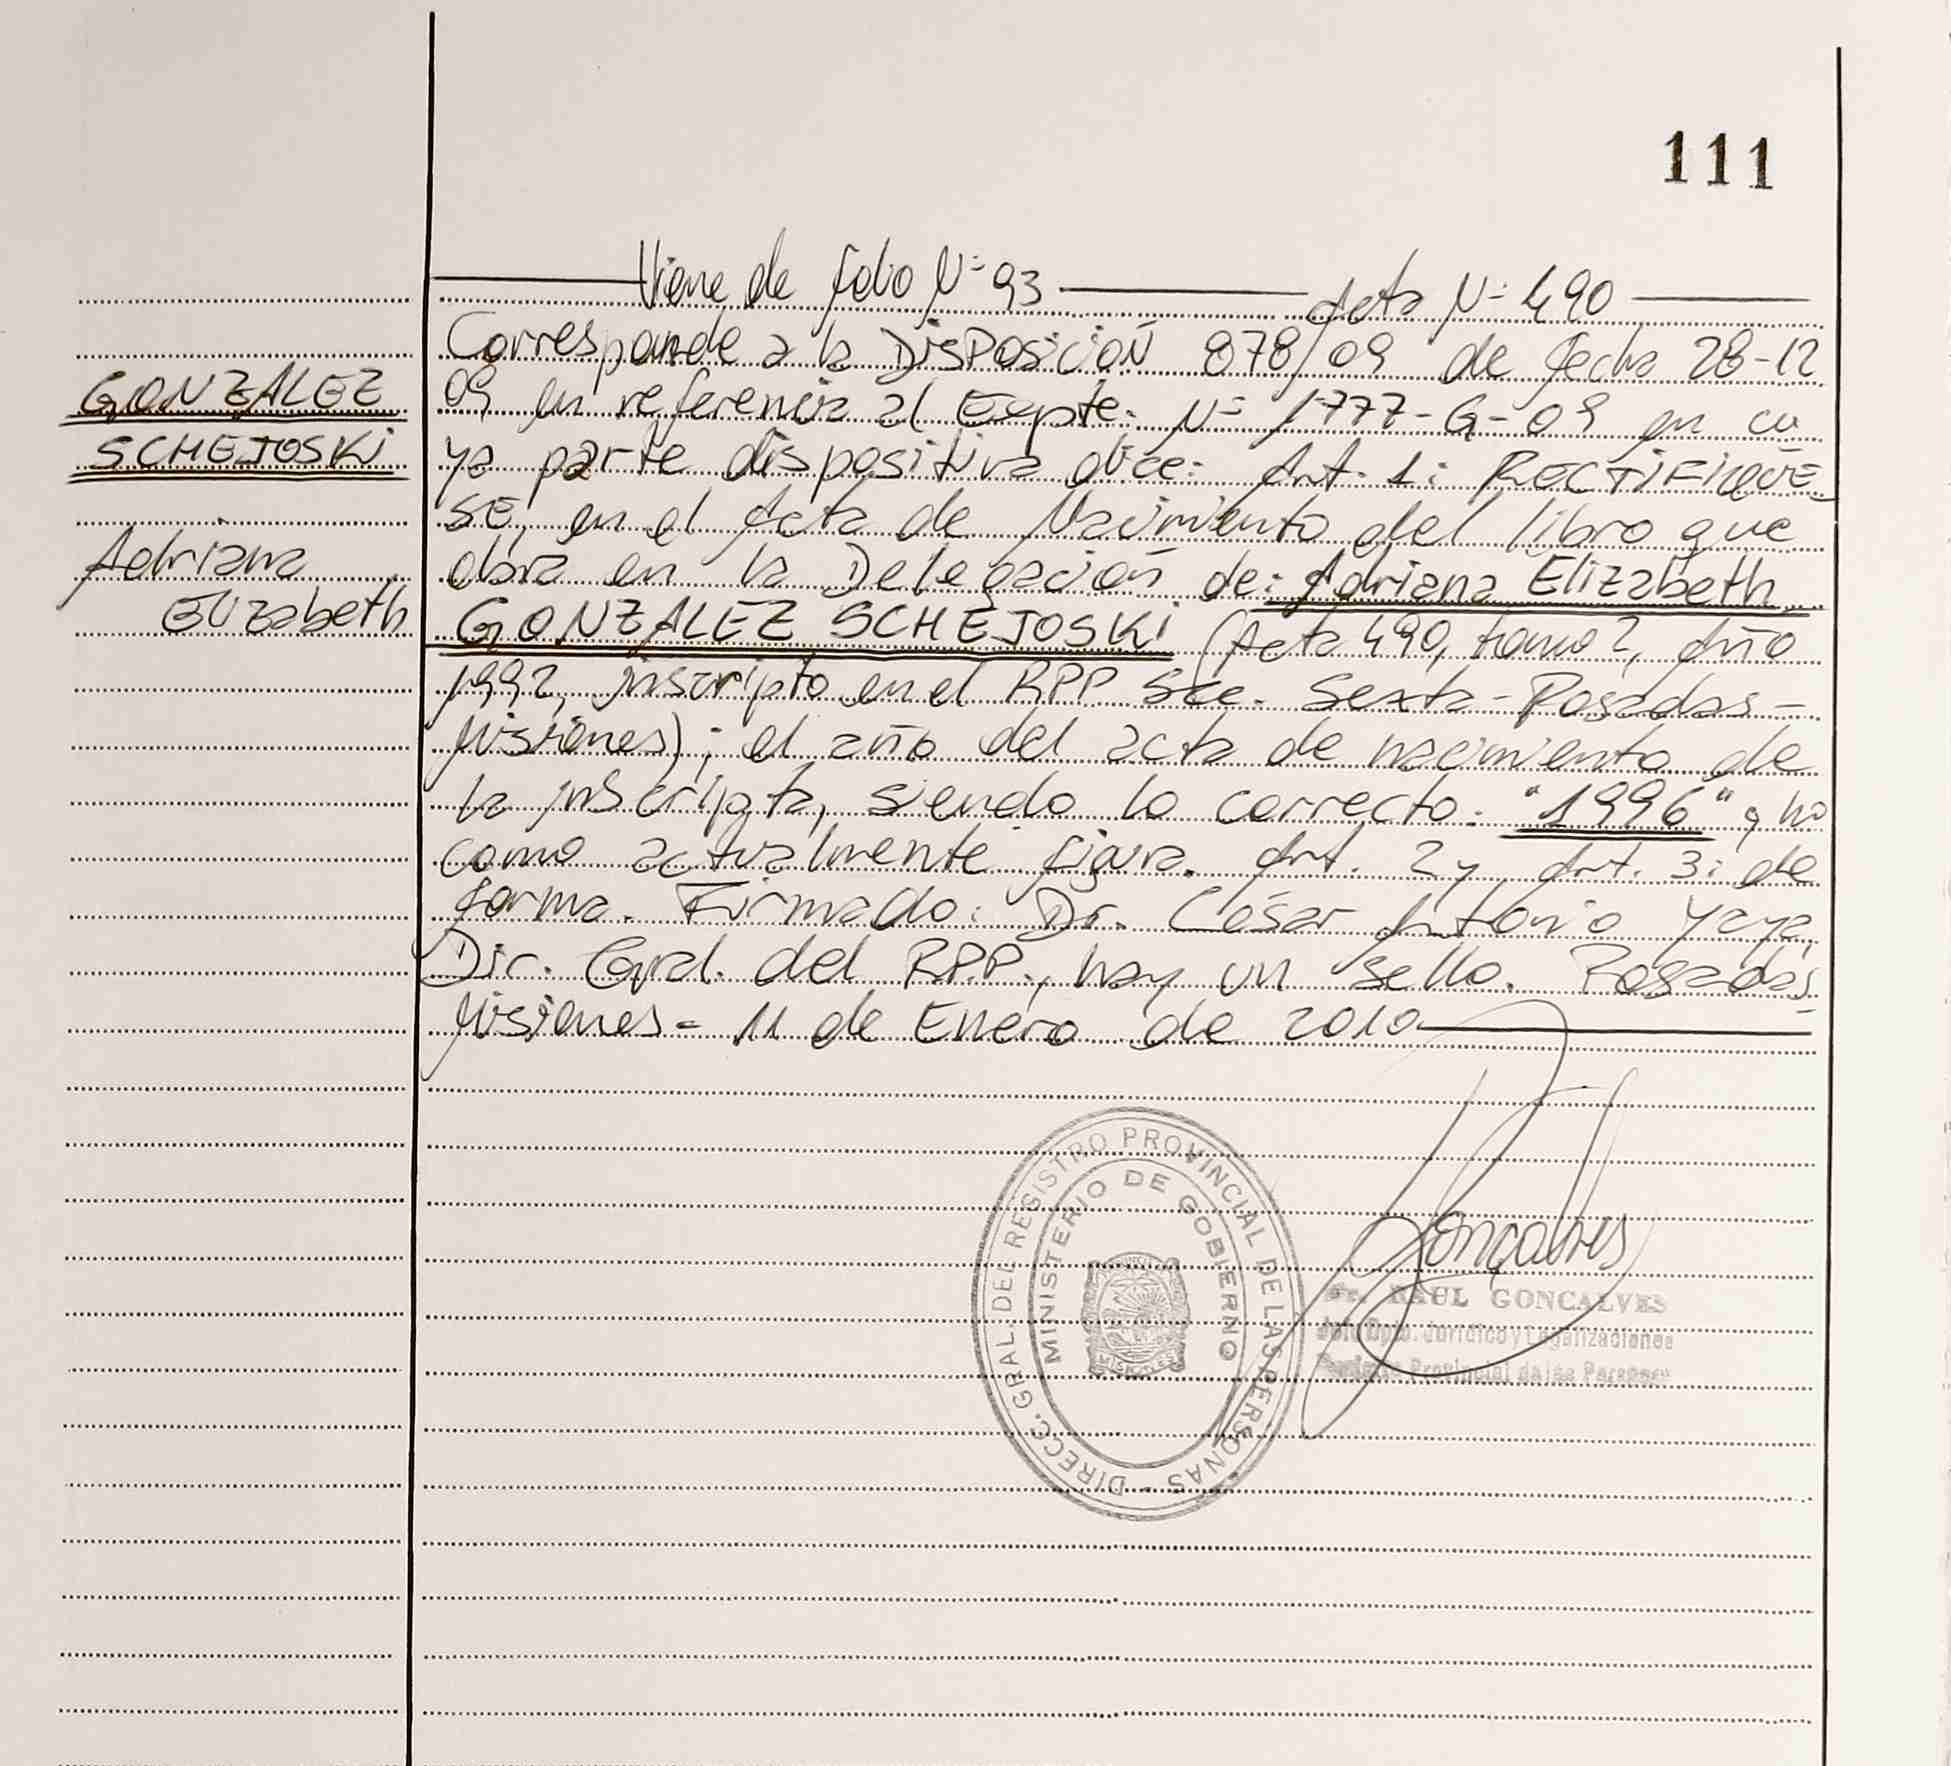 111
Viene de folio Nº 93 Acta Nº 490
Corresponde a la DISPOSICIÓN 878/09 de fecha 28-12
09 en referencia al Expte. Nº 1777-G-09 en cu
ya parte dispositiva dice: Art. 1: RECTIFIQUE
SE, en el Acta de Nacimiento del libro que
obra en la Delegación de: Adriana Elizabeth
GONZALEZ SCHEJOSKI (Acta 490, tomo 2, Año
1992, inscripto en el RPP Sec. Sexta-Posadas-
Misiones); el año del acta de nacimiento de
la inscripta, siendo lo correcto: "1996" y no
como actualmente figura. Art. 2 y Art. 3: de
forma. Firmado: Dr. César Antonio Yaya,
Dir. Gral. del R.P.P., hay un sello. Posadas,
Misiones = 11 de Enero de 2010
GONZALEZ
SCHEJOSKI
Adriana
Elizabeth
DIRECC. GRAL. DEL REGISTRO PROVINCIAL DE LAS PERSONAS -
MINISTERIO DE GOBIERNO
MISIONES
Gonçalves
Dr. RAUL GONCALVES
Jefe Dpto. Jurídico y Legalizaciones
Registro Provincial de las Personas